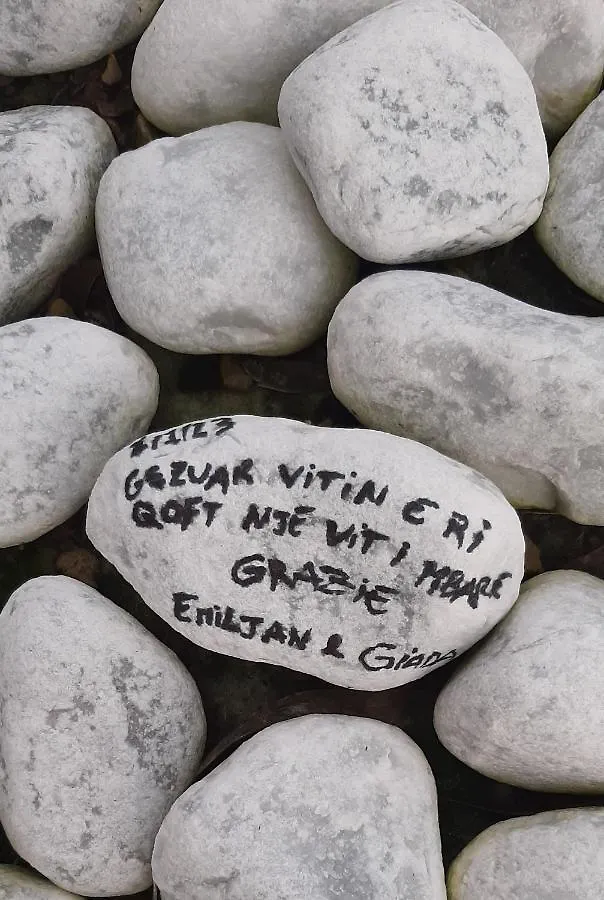 1/1/23
GEZUAR VITIN E RI
QOFT NJE VIT I MBARE
GRAZIE
EMILJAN & GIADA